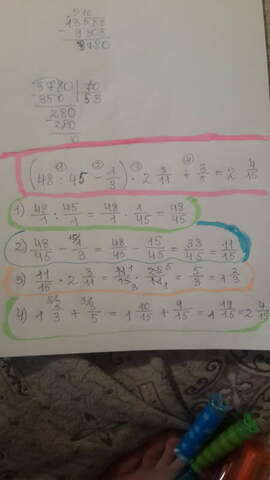 13588
- 9808
3780
3780 | 70
350 | 53
280
- 280
0
(48 : 45 - 1/3) · 2 3/11 + 3/5 = 2 4/15
1) 48/1 : 45/1 = 48/1 · 1/45 = 48/45
2) 48/45 - 1/3 = 48/45 - 15/45 = 33/45 = 11/15
3) 11/15 · 2 3/11 = 11/15 · 25/11 = 5/3 = 1 2/3
4) 1 2/3 + 3/5 = 1 10/15 + 9/15 = 1 19/15 = 2 4/15